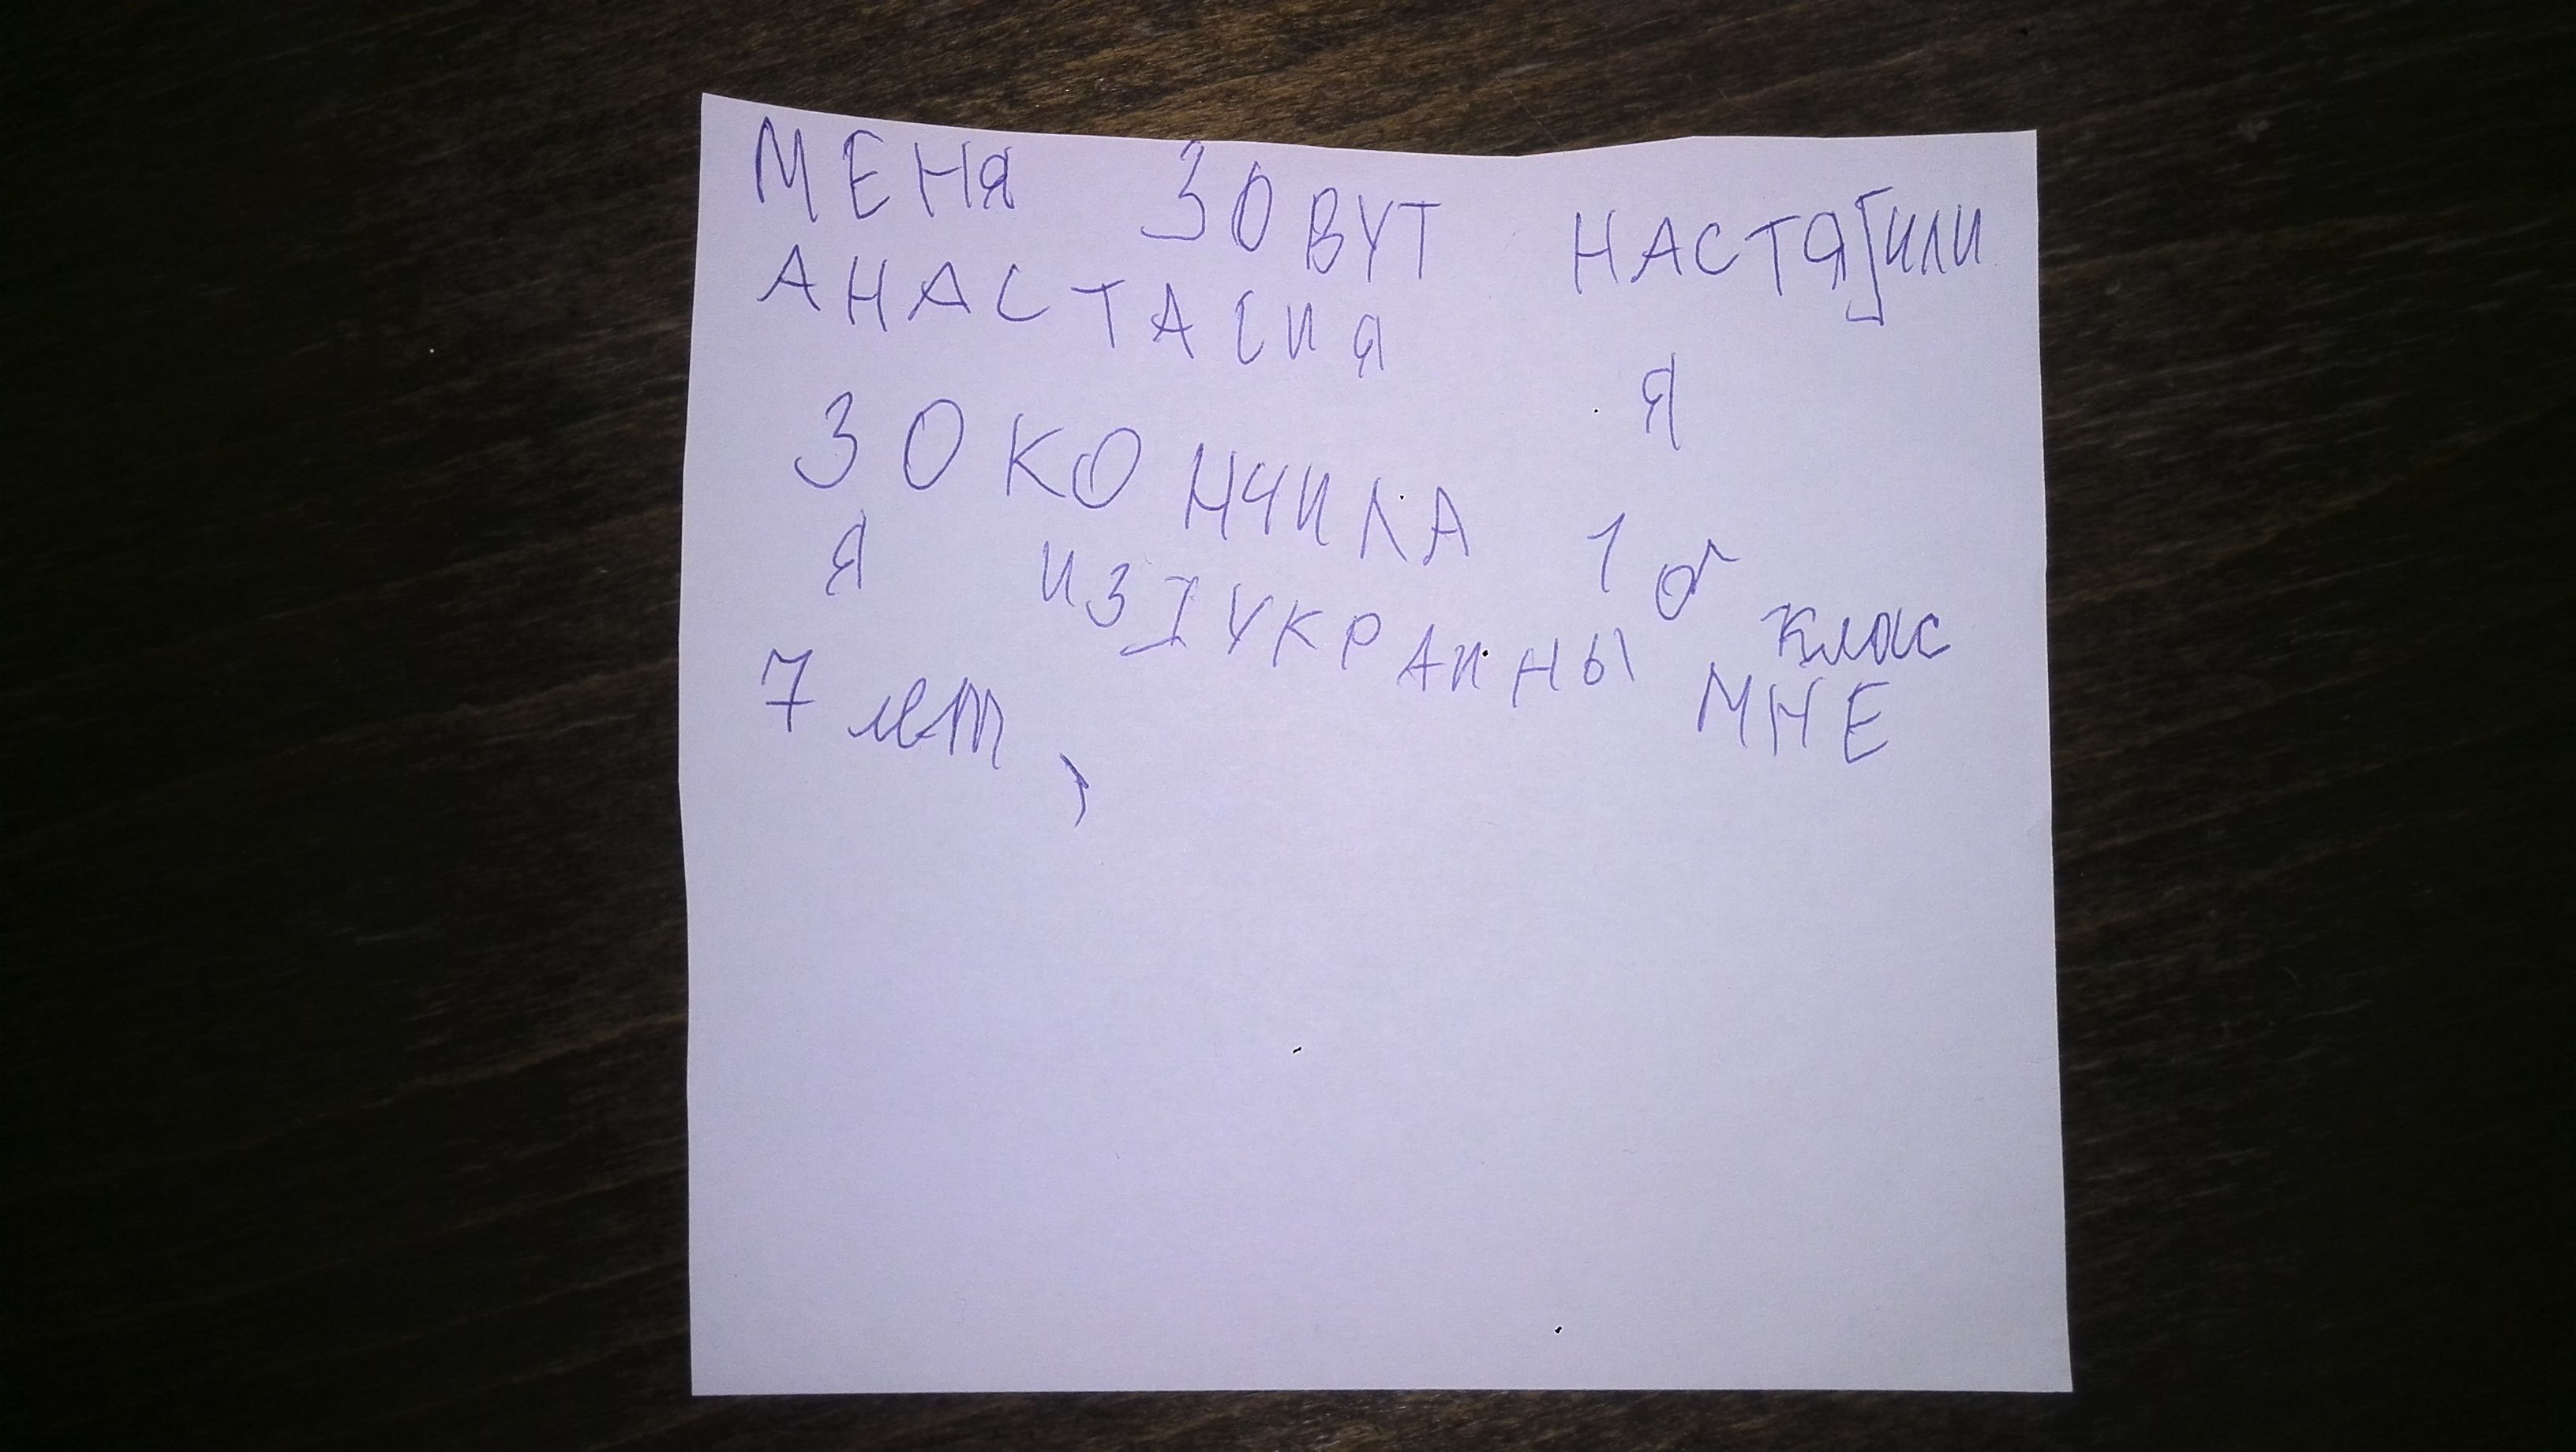 МЕНЯ ЗОВУТ НАСТЯ ИЛИ
АНАСТАСИЯ
Я
ЗОКОНЧИЛА 1 клас
Я ИЗ УКРАИНЫ МНЕ
7 лет,